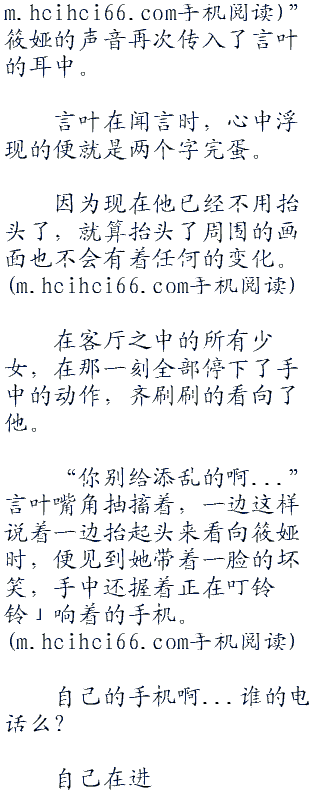 m.hcihci66.com手机阅读)”
筱娅的声音再次传入了言叶
的耳中。
言叶在闻言时，心中浮
现的便就是两个字完蛋。
因为现在他已经不用抬
头了，就算抬头了周围的画
面也不会有着任何的变化。
(m.hcihci66.com手机阅读)
在客厅之中的所有少
女，在那一刻全部停下了手
中的动作，齐刷刷的看向了
他。
“你别给添乱的啊...”
言叶嘴角抽搐着，一边这样
说着一边抬起头来看向筱娅
时，便见到她带着一脸的坏
笑，手中还握着正在叮铃
铃」响着的手机。
(m.hcihci66.com手机阅读)
自己的手机啊...谁的电
话么?
自己在进